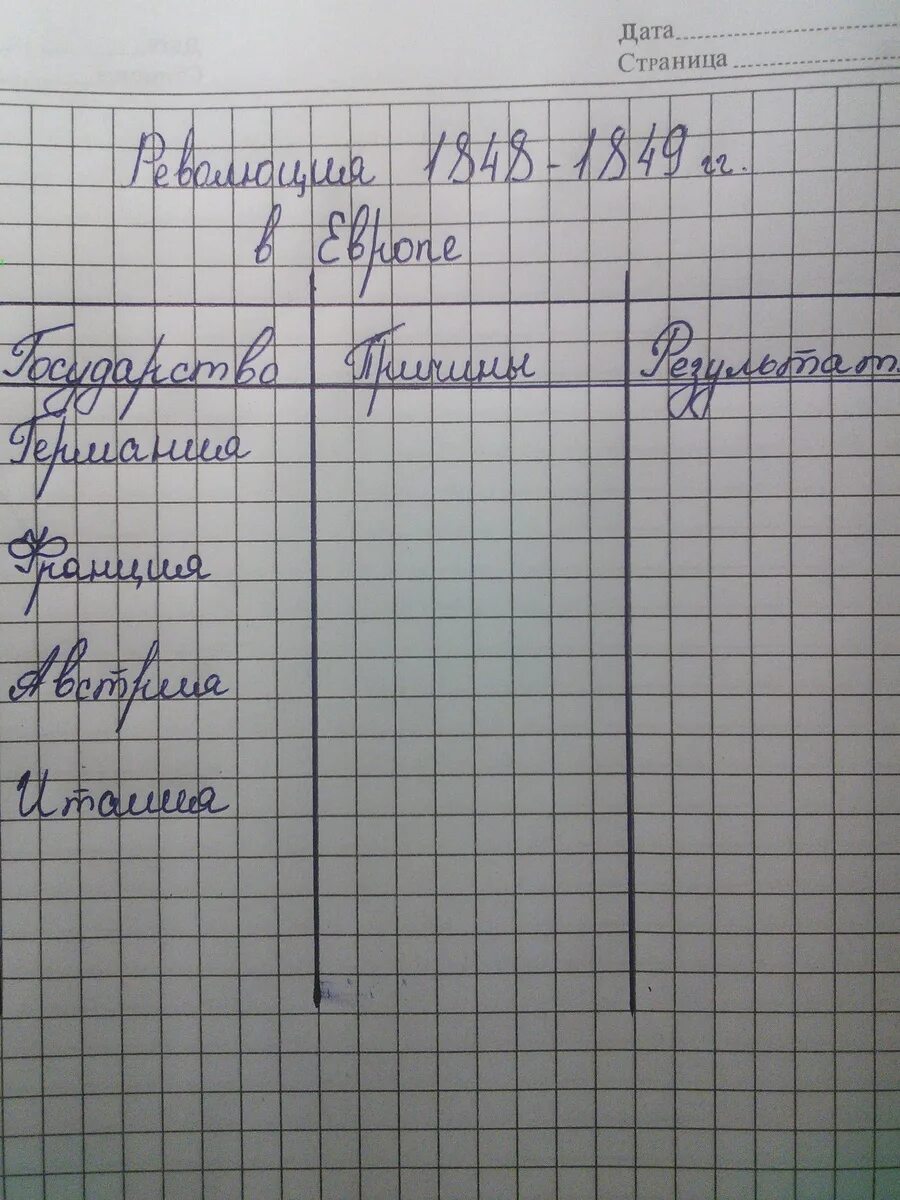 Дата
Страница
Революция 1848-1849 гг.
в Европе
Государство Причины Результат
Германия
Франция
Австрия
Италия